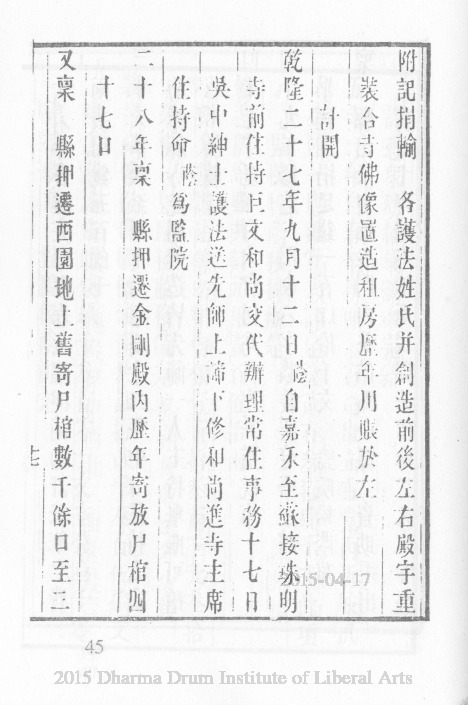 附記捐輸　各護法姓氏并創造前後左右殿宇重
裝合寺佛像置造租房歷年用賬於左
計開
乾隆二十七年九月十二日 自嘉禾至蘇接珠明
寺前住持巨文和尚交代辦理常住事務十七日
吳中紳士護法送先師上諦下修和尚進寺主席
住持命 為監院
二十八年稟　縣押遷金剛殿內歷年寄放尸棺四
十七口
又稟　縣押遷西園地上舊寄尸棺數千餘口至三
2015-04-17
45
2015 Dharma Drum Institute of Liberal Arts